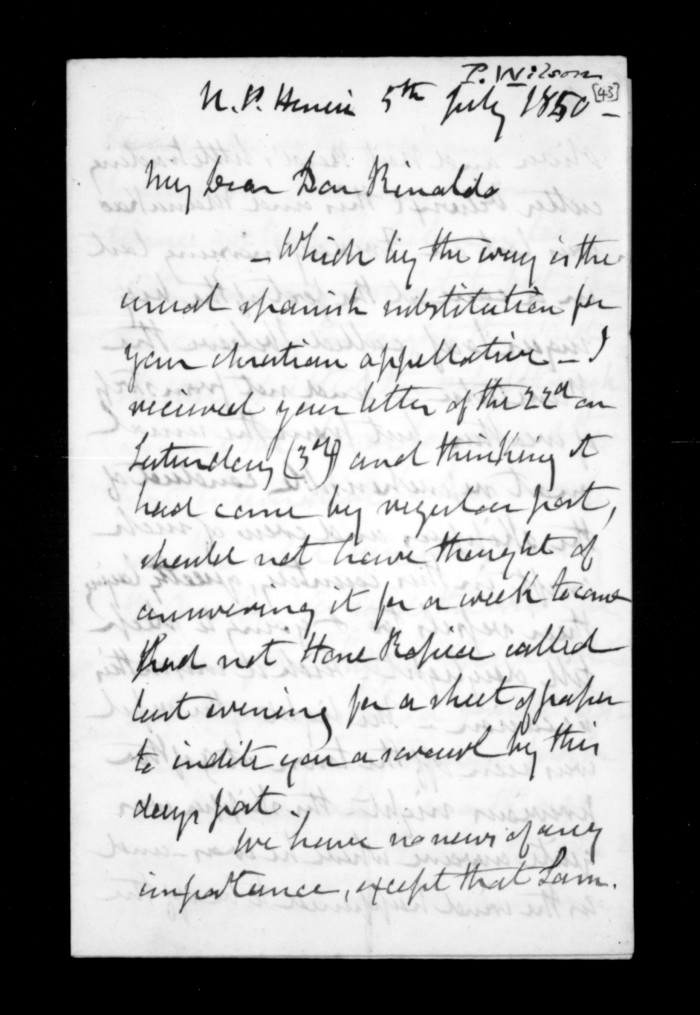 P. Wilson
[43]
5th July 1850 -
My dear Don Rinaldo
- Which by the way is the
usual spanish substitution for
your christian appellative - I
received your letter of the 22d on
Saturday (3d) and thinking it
had come by regular post,
should not have thought of
answering it for a week to come
had not Hone called
last evening for a sheet of paper
to indite you a by this
days post.
We have no news of any
importance, except that Sam.